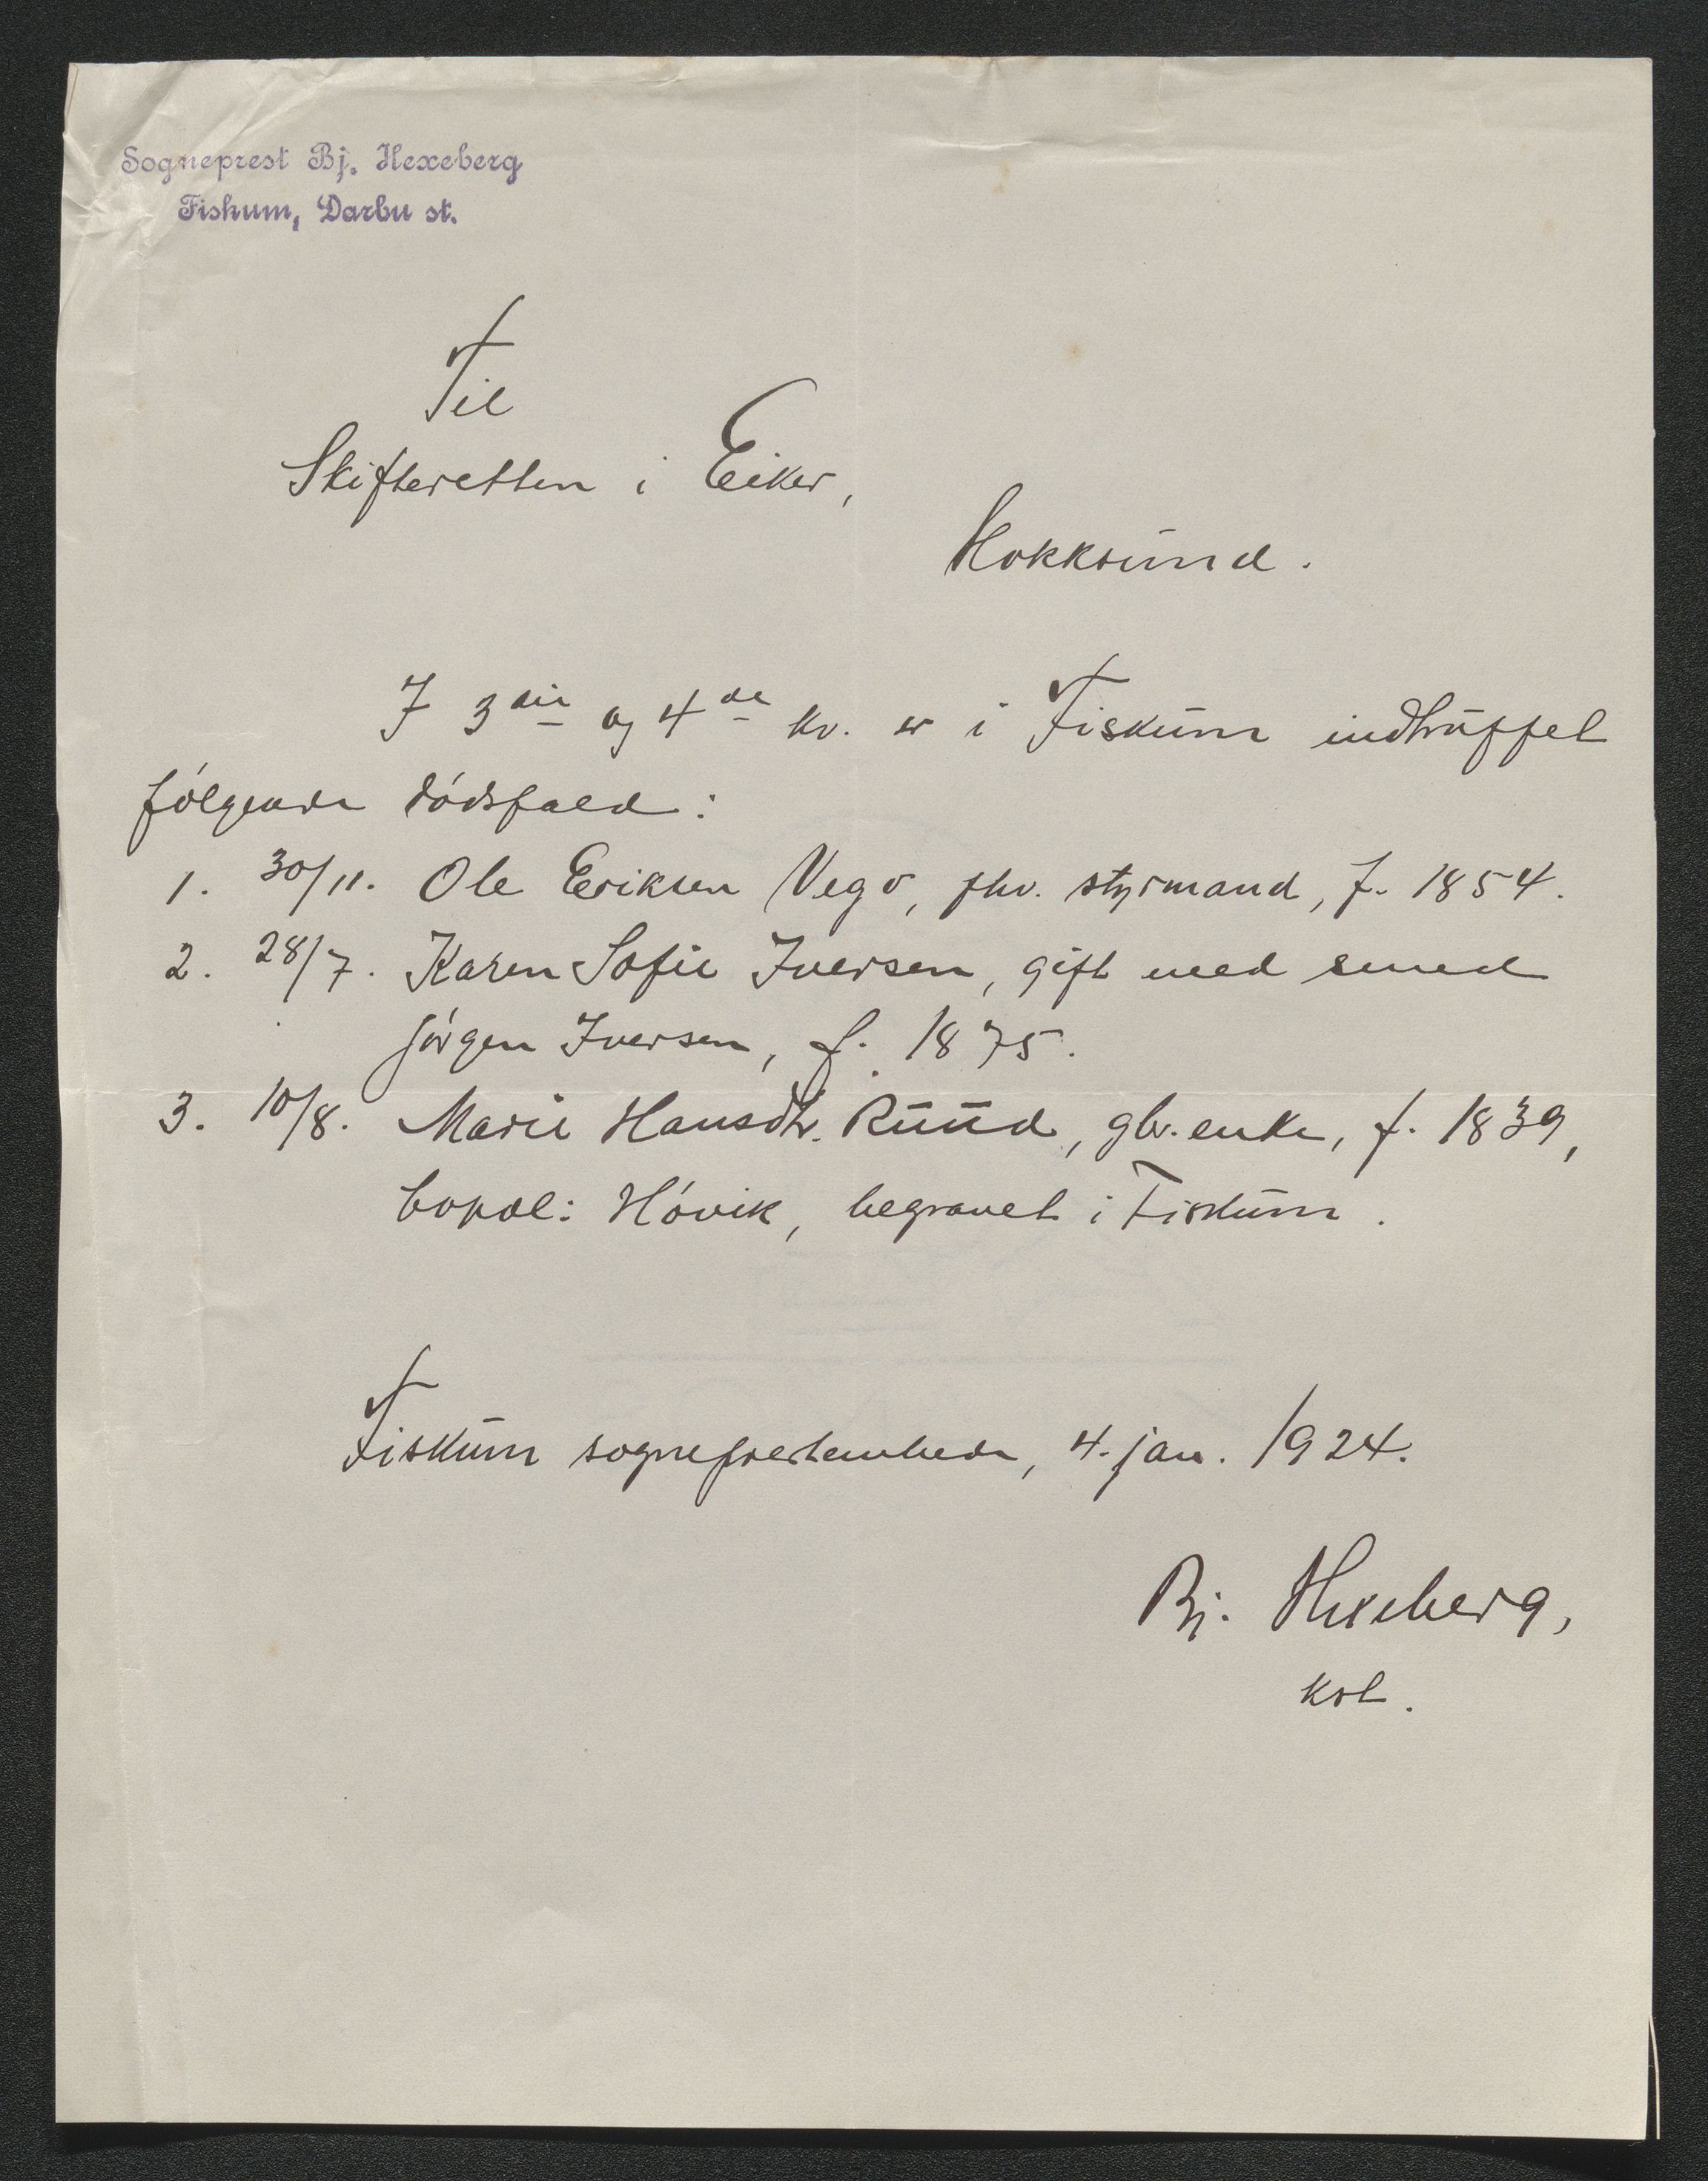 Sogneprest Bj. Hexeberg
Fiskum, Darbu st.
Til
Skifteretten i Eiker,
Hokksund.
I 3die og 4de kv. er i Fiskum indtruffet
følgende dødsfald:
1. 30/11. Ole Eriksen Vego, fhv. styrmand, f. 1854.
2. 28/7. Karen Sofie Iversen, gift med smed
Jørgen Iversen, f. 1875.
3. 10/8. Marie Hansdtr. Ruud, gbr.enke, f. 1839,
bopæl: Høvik, begravet i Fiskum.
Fiskum sogneprestembede, 4. jan. 1924.
Bj. Hexeberg,
kst.